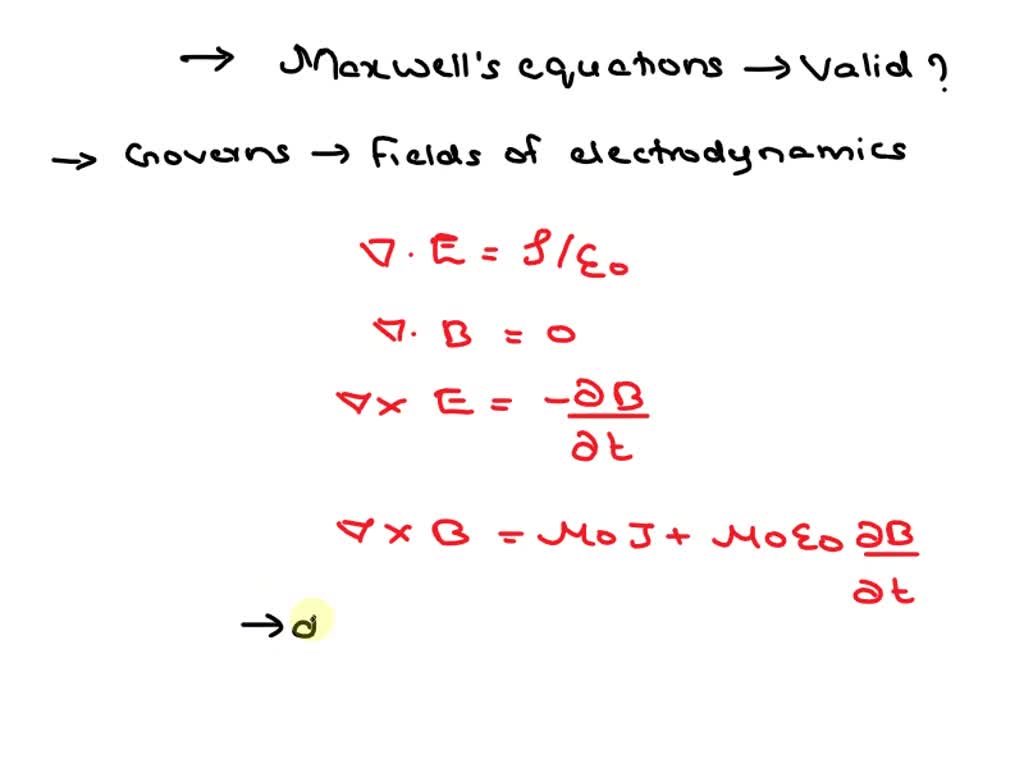 → Maxwell's equations → Valid ?
→ Governs → Fields of electrodynamics
∇ . E = ρ/ε₀
∇ . B = 0
∇ × E = -∂B/∂t
∇ × B = μ₀J + μ₀ε₀ ∂B/∂t
→ a